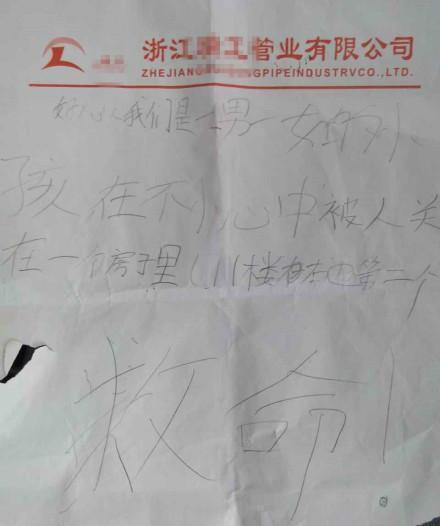 浙江 工管业有限公司
ZHEJIANG GPIPEINDUSTRVCO.,LTD.
好心人我们是一男一女的小
孩在不小心中被人关
在一个房子里 楼右边第二个
救命!